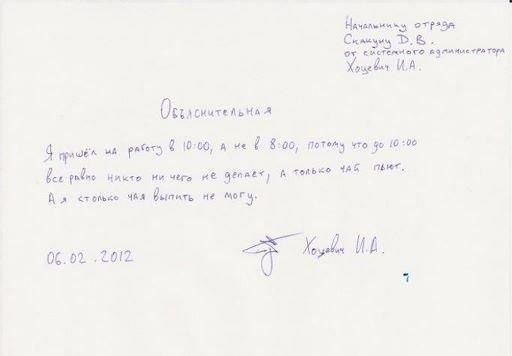 Начальнику отряда
Скакуну Д.В.
от системного администратора
Хоцевич И.А.
Объяснительная
Я пришёл на работу в 10:00, а не в 8:00, потому что до 10:00
все равно никто ни чего не делает, а только чай пьют.
А я столько чая выпить не могу.
06.02.2012
Хоцевич И.А.